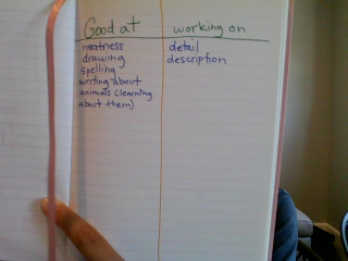 Good at
neatness
drawing
spelling
writing about
animals (learning
about them)
working on
detail
description